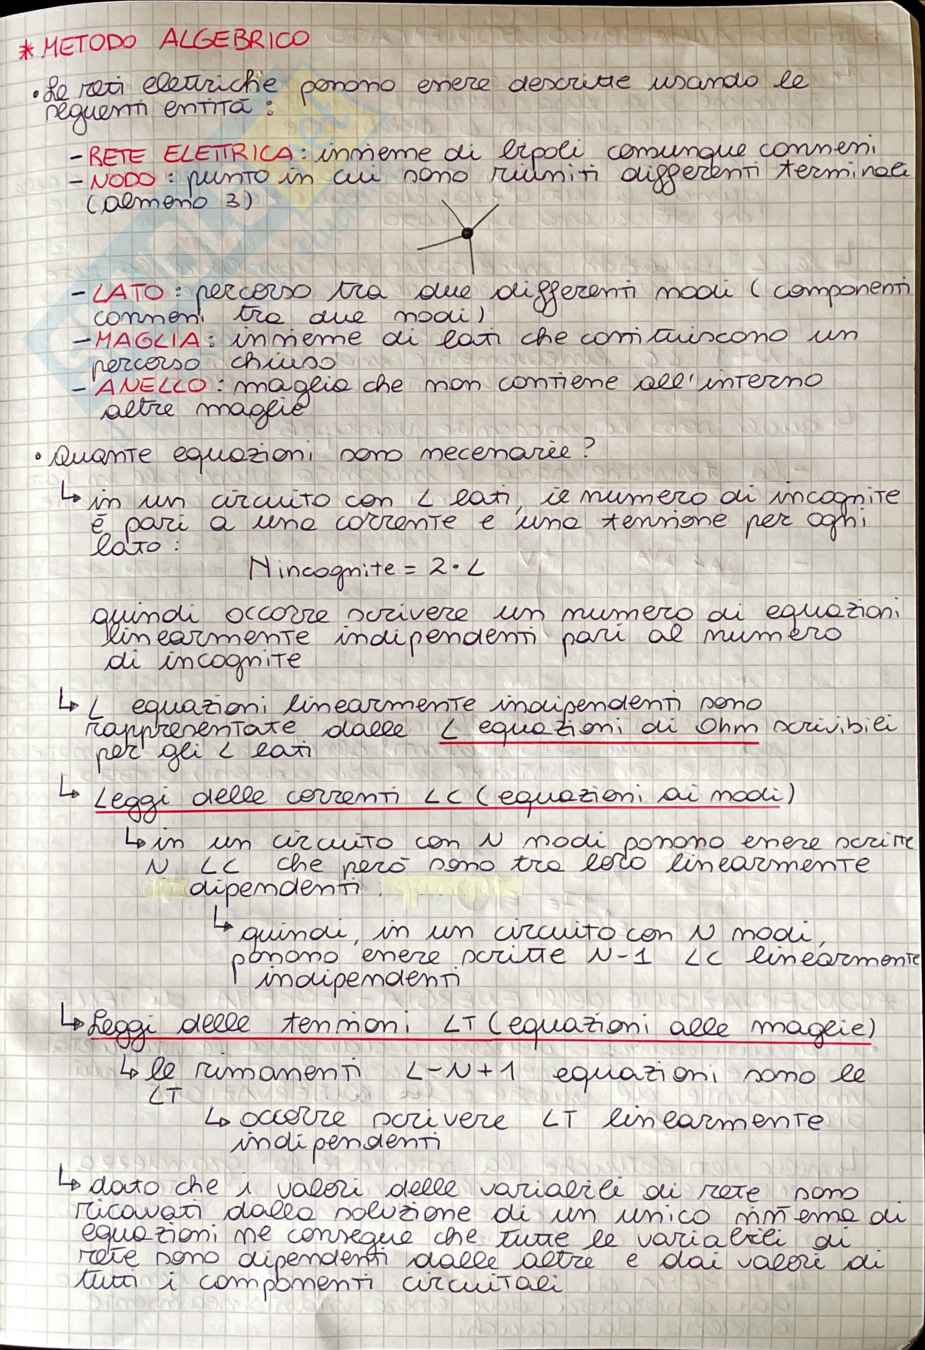 * METODO ALGEBRICO
• Le reti elettriche possono essere descritte usando le
seguenti entità :
- RETE ELETTRICA : insieme di bipoli comunque connessi
- NODO : punto in cui sono riuniti differenti terminali
(almeno 3)
- LATO : percorso tra due differenti nodi ( componenti
connessi tra due nodi)
- MAGLIA : insieme di lati che costituiscono un
percorso chiuso
- ANELLO : maglia che non contiene all'interno
altre maglie
• Quante equazioni sono necessarie ?
↳ in un circuito con L lati, il numero di incognite
è pari a una corrente e una tensione per ogni
lato :
Nincognite = 2 · L
quindi occorre scrivere un numero di equazioni
linearmente indipendenti pari al numero
di incognite
↳ L equazioni linearmente indipendenti sono
rappresentate dalle L equazioni di Ohm scrivibili
per gli L lati
↳ Leggi delle correnti LC ( equazioni ai nodi )
↳ in un circuito con N nodi possono essere scritte
N LC che però sono tra loro linearmente
dipendenti
↳ quindi, in un circuito con N nodi,
possono essere scritte N-1 LC linearmente
indipendenti
↳ Leggi delle tensioni LT ( equazioni alle maglie )
↳ le rimanenti L-N+1 equazioni sono le
LT
↳ occorre scrivere LT linearmente
indipendenti
↳ dato che i valori delle variabili di rete sono
ricavati dalla soluzione di un unico sistema di
equazioni ne consegue che tutte le variabili di
rete sono dipendenti dalle altre e dai valori di
tutti i componenti circuitali